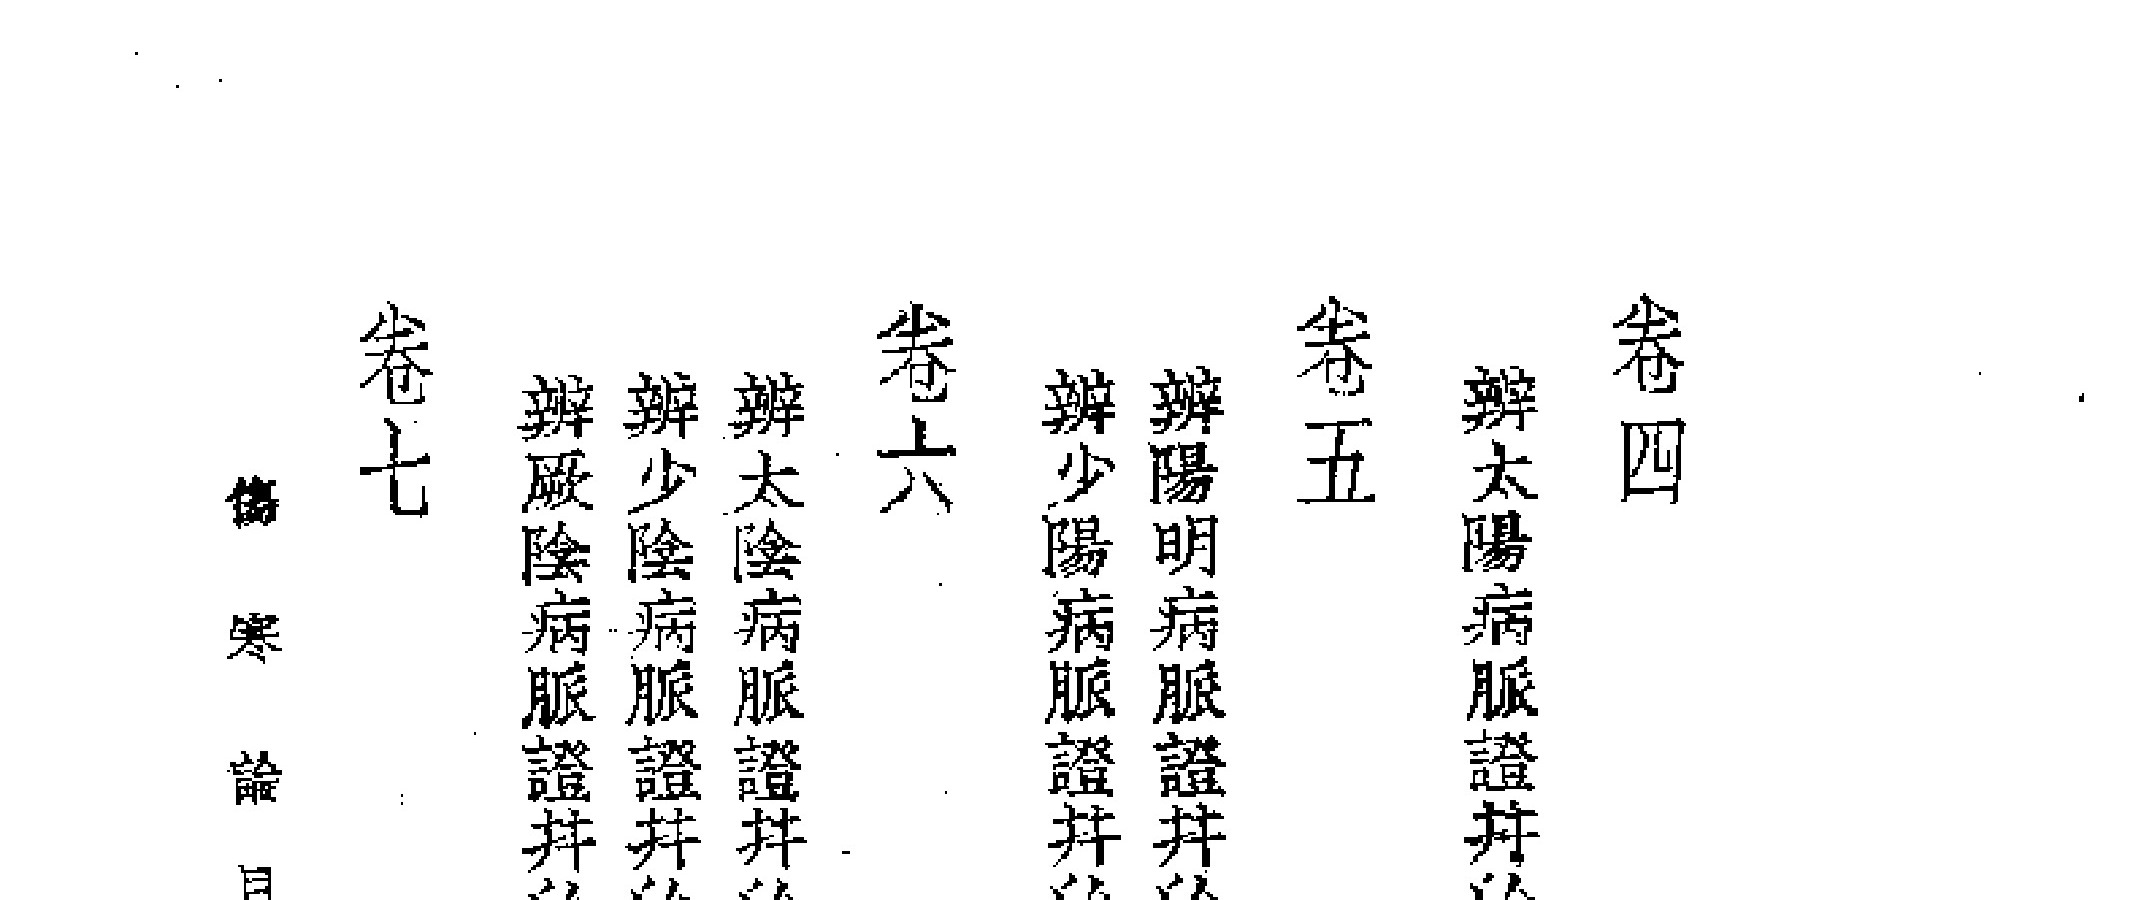 卷四
辨太陽病脈證并
卷五
辨陽明病脈證并
辨少陽病脈證并
卷六
辨太陰病脈證并
辨少陰病脈證并
辨厥陰病脈證并
卷七
傷寒論目